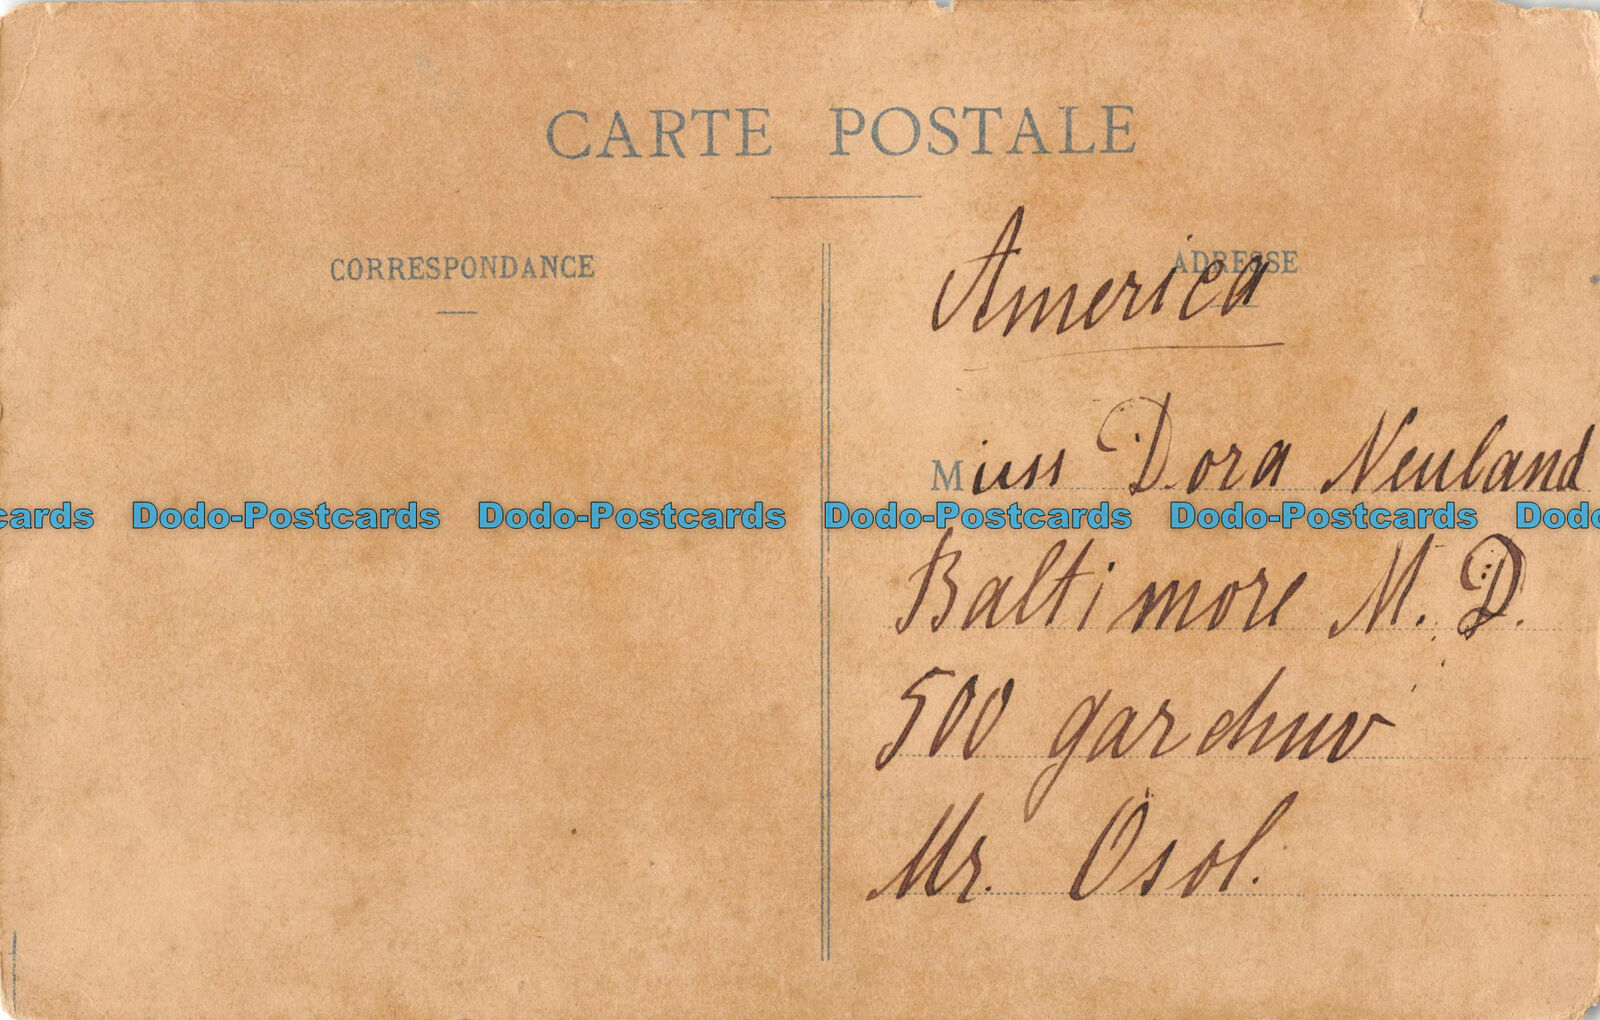 CARTE POSTALE
CORRESPONDANCE
ADRESSE
America
Miss Dora Neuland
Dodo-Postcards Dodo-Postcards Dodo-Postcards Dodo-Postcards
Baltimore M. D.
500
Mr. Osol.